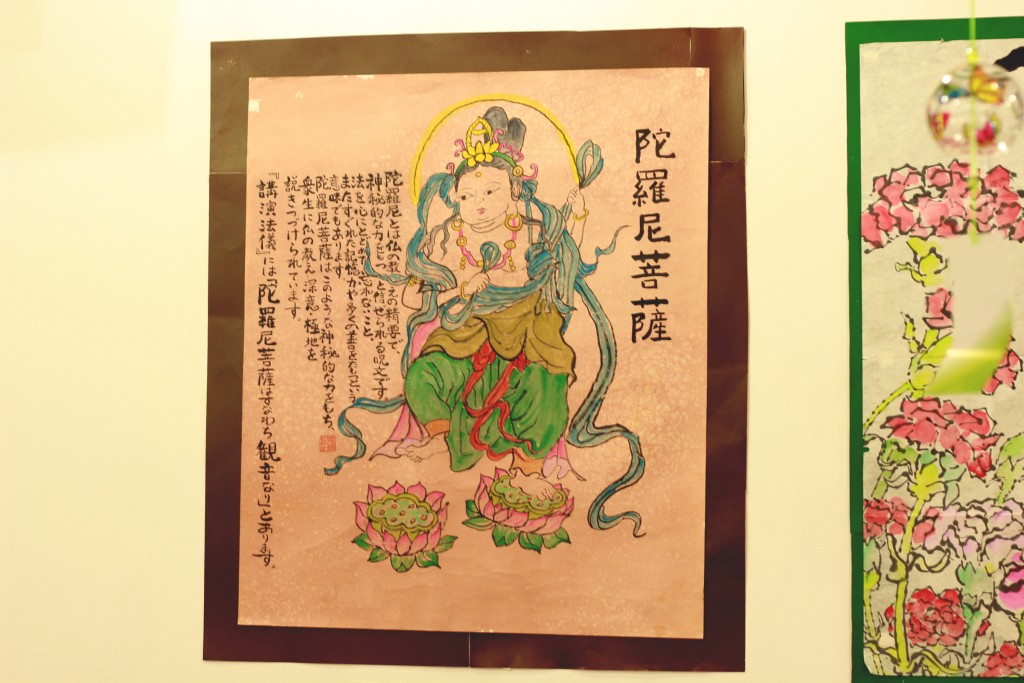 陀羅尼菩薩
陀羅尼とは仏の教えの精要で
神秘的な力をもつと信ぜられる呪文です。
法を心にとどめて忘れないこと、
またすぐれた記憶力や多くの善をもつという
意味でもあります。
陀羅尼菩薩はこのような神秘的な力をもち、
衆生に仏の教え、深意、極地を
説きつづけられています。
『講演法儀』には「陀羅尼菩薩はすなわち観音なり」とあります。